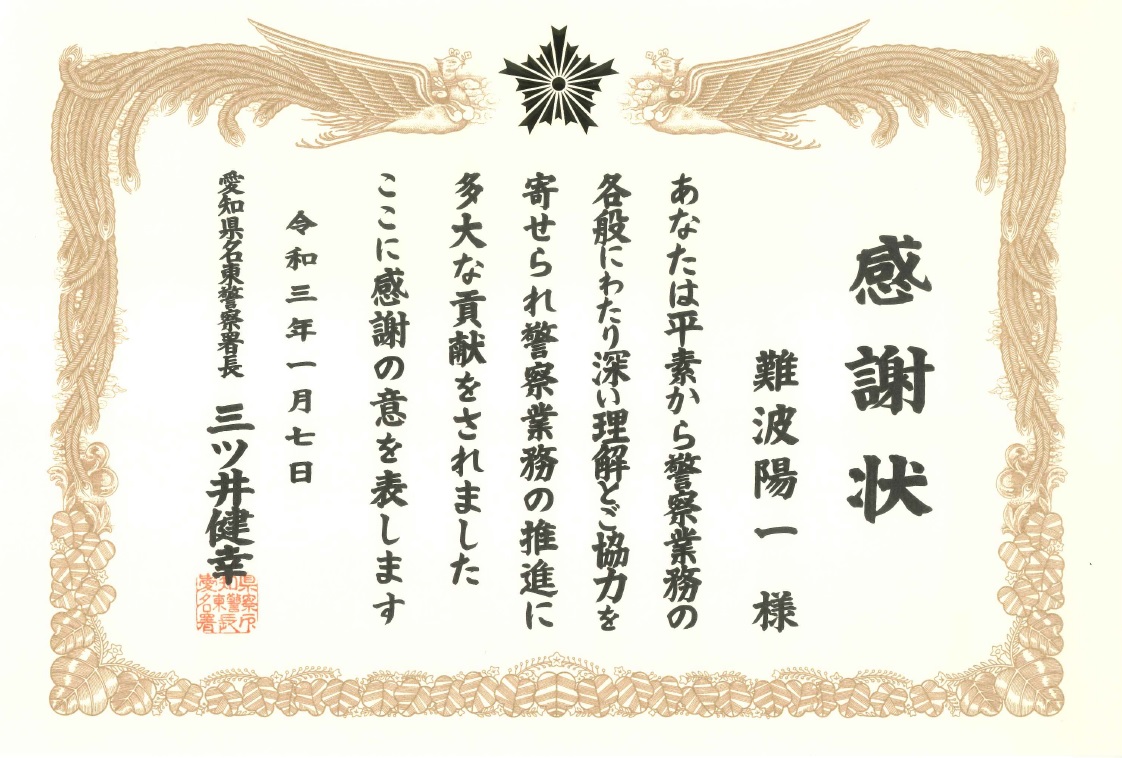 感謝状
難波陽一 様
あなたは平素から警察業務の
各般にわたり深い理解とご協力を
寄せられ警察業務の推進に
多大な貢献をされました
ここに感謝の意を表します
令和三年一月七日
愛知県名東警察署長 三ツ井健幸